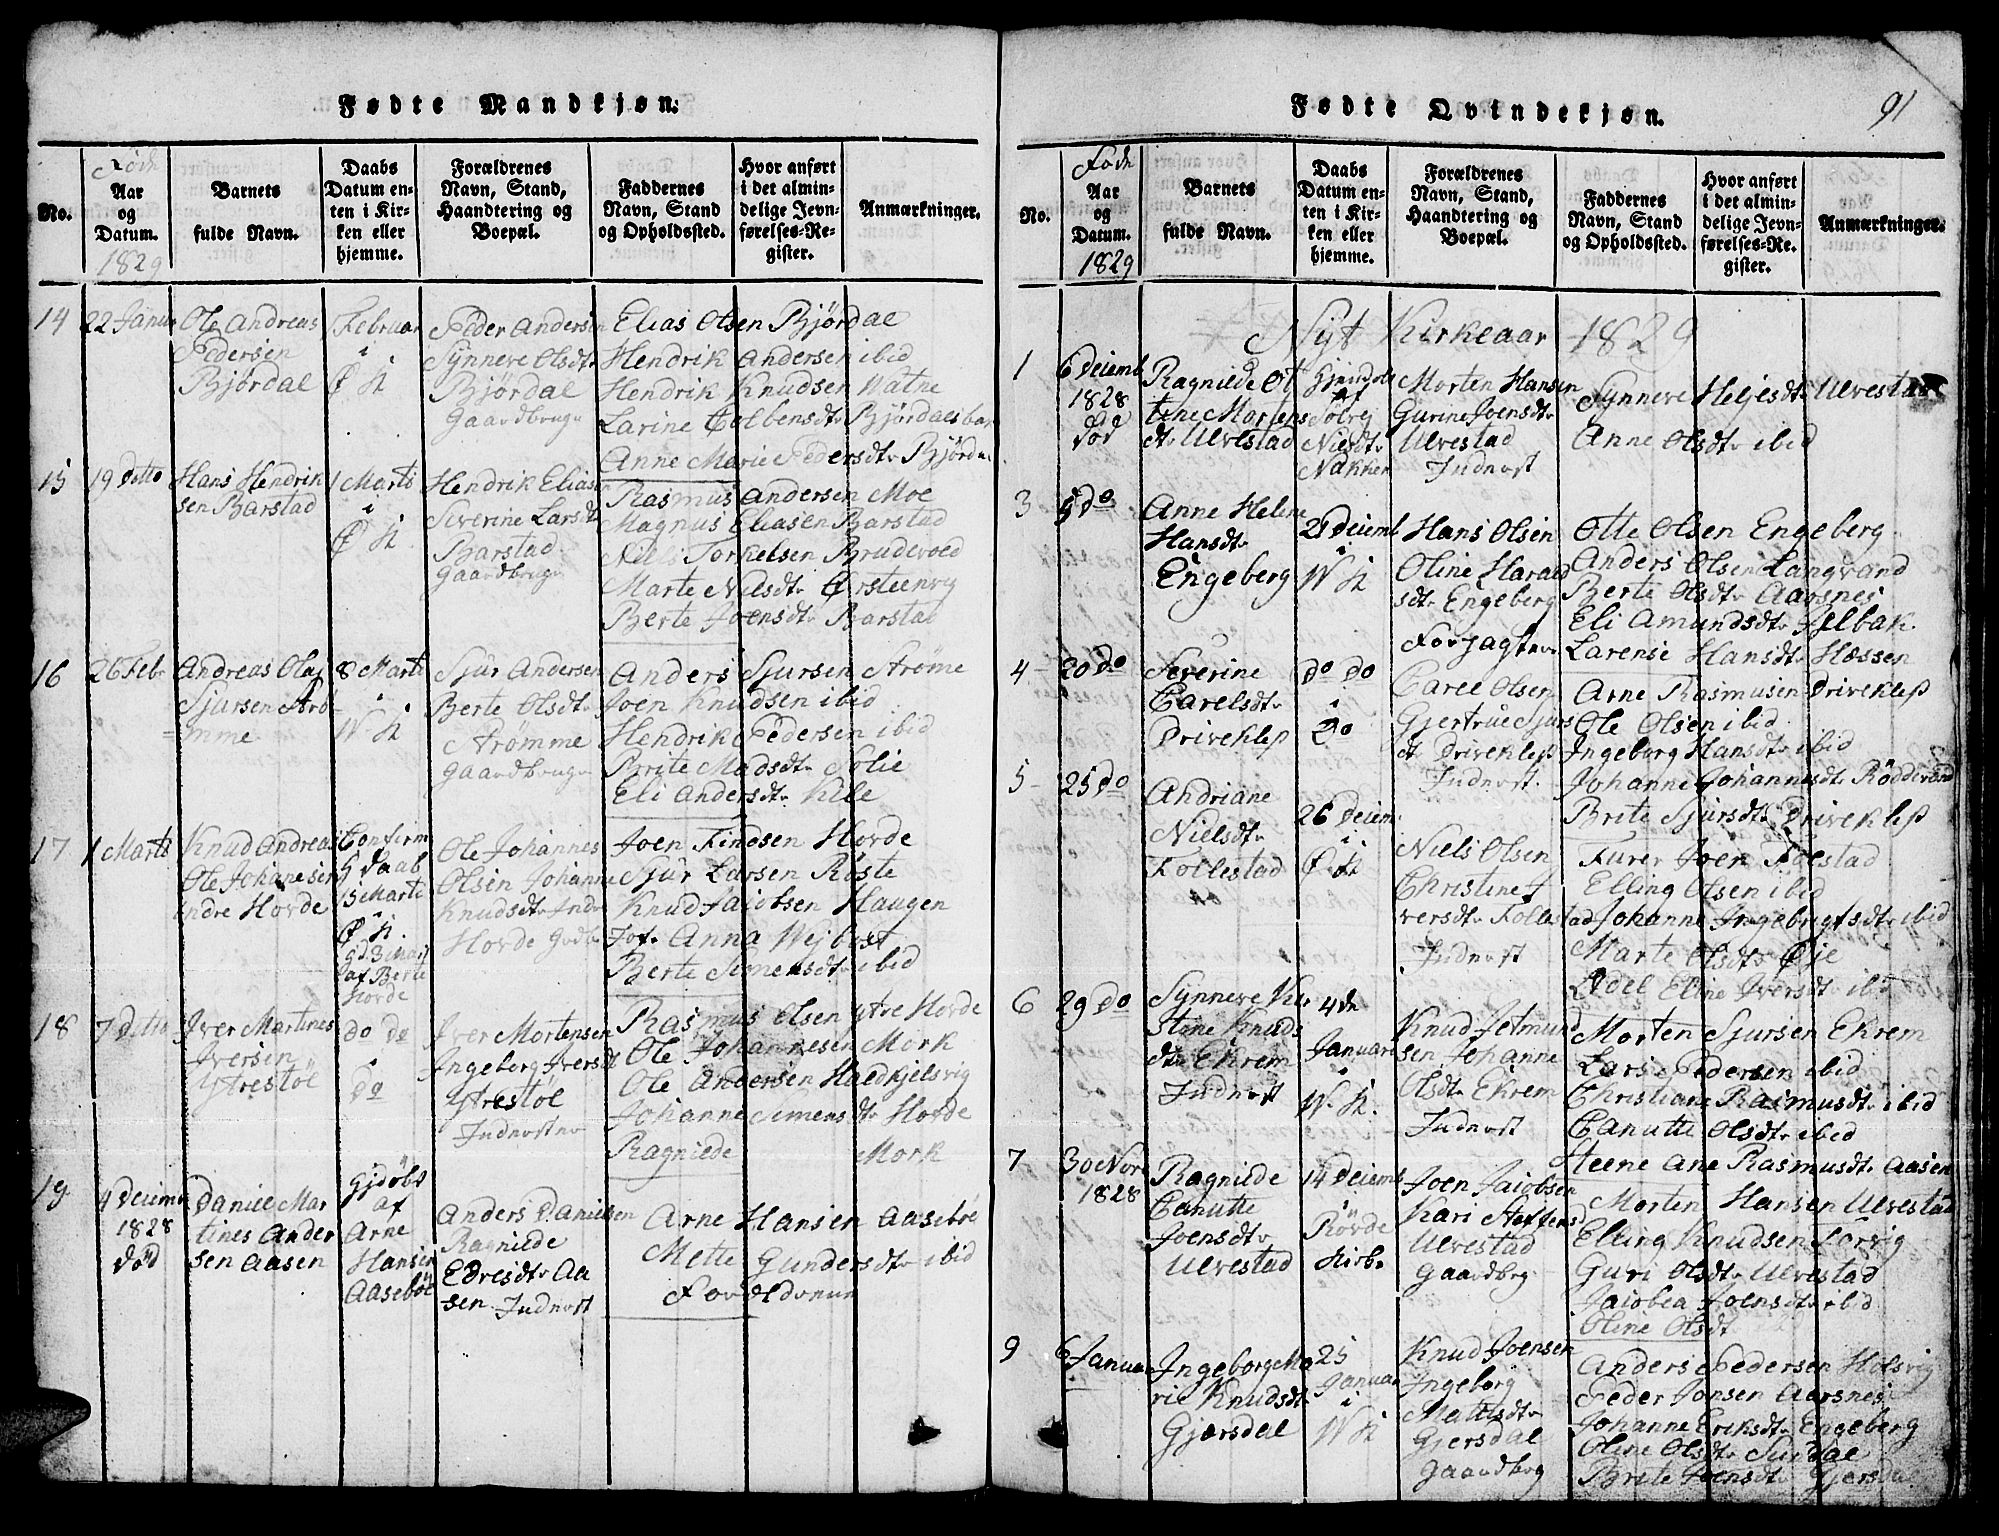 Fødte Mandkjøn.
No.
Føde
Aar
og
Datum.
1829
Barnets
fulde Navn.
Daabs
Datum en-
ten i Kir-
ken eller
hjemme.
Forældrenes
Navn, Stand,
Haandtering og
Boepæl.
Faddernes
Navn, Stand
og Opholdssted.
Hvor anført
i det almin-
delige Jevn-
førelses-Re-
gister.
Anmærkninger.
14
22 Janu
Ole Andreas
Pedersen
Bjørdal
Februar
i
Ø K
Peder Andersen
Synneve Olsdtr
Bjørdal
Gaardbruger
Elias Olsen Bjørdal
Hendrik Andersen ibid
Hendrik Knudsen Watne
Larine Colbensdtr Bjørdalsbak
Anne Marie Pedersdtr Bjørdal
15
19 Detto
Hans Hendrik
sen Barstad
1 Marti
i
Ø K
Hendrik Eliasen
Severine Larsdt
Barstad
Gaardbruger
Rasmus Andersen Moe
Magnus Eliasen Barstad
Niels Torkelsen Brudevoed
Marte Nilsdtr Ørsteenvig
Berte Joensdtr Barstad
16
26 Febr
Andreas Olaj
Sjursen Strö-
mme
8 Marti
i
W K
Sjur Andersen
Berte Olsdtr
Strømme
Gaardbruger
Anders Sjursen Strøme
Joen Knudsen ibid
Hendrik Pedersen ibid
Brite Madsdtr Solie
Eli Andersdtr Kile
17
1 Marti
Knud Andreas
Ole Johanesen
indre Hovde
Confirm
g Daab
15 Marti
i
Ø K.
gd. 3 Mart
af Berte
Hovde
Ole Johannes
Olsen Johanne
Knudsdtr Indr
Hovde Gadbr
Joen Findsen Hovde
Sjur Larsen Röste
Knud Jaiobsen Haugen
Jof. Anna Wejbust
Berte Simensdtr ibid
18
7 Detto
Iver Martines
Iversen
Ytrestöl
do do
i
Do
Iver Mortensen
Ingeberg Iversdt
Ytrestöl
Indnostnr
Rasmus Olsen ytre Hovde
Ole Johannesen Mork
Ole Andersen Haedkjelsvig
Johanne Simensdtr Hovde
Ragnilde Mork
19
4 Deiemb
1828
död
Daniel Mar
tines Ander
sen Aasen
Gjdöbt
af
Arne
Hansen
Aaseböe
Anders Danielsen
Ragnilde
Edresdtr Aa
sen. Indnost
Arne Hansen Aaseböe
Mette Gundersdtr ibid
Forældrenne
Fødte Qvindekjøn.
91
No.
Føde
Aar
og
Datum.
1829
Barnets
fulde Navn.
Daabs
Datum en-
ten i Kir-
ken eller
hjemme.
Forældrenes
Navn, Stand,
Haandtering og
Boepæl.
Faddernes
Navn, Stand
og Opholdssted.
Hvor anført
i det almin-
delige Jevn-
førelses-Re-
gister.
Anmærkninger.
Nyt Kirkeaar 1829
1
6 Deiemb
1828
död
Ragnilde Ol
tene Mortens
dtr Ulvestad
af
Sölvej
Nielsdtr
Nakken
Morten Hansen
Gurine Joensdtr
Ulvestad
Indnost
Synneve Heljesdtr Ulvestad
Anne Olsdtr ibid
3
9 Do
Anne Helene
Hansdtr
Engeberg
21 Deiemb
i
W K
Hans Olsen
Oline Harald
sdtr Engeberg
Otte Olsen Engeberg
Anders Olsen Langvand
Berte Olsdtr Aarsnes
Eli Amundsdtr Jelbak
Larense Hansdtr Hessen
4
20 Do
Severine
Carelsdtr
Driveklep
do do
i
Do
Carel Olsen
Gjertrue Sjurs
dt Driveklep
Indnost.
Arne Rasmusen Driveklep
Ole Olsen ibid
Ingeborg Hansdtr ibid
Johanne Johannesdtr Röddevand
Brite Sjursdtr Driveklep
5
25 Do
Andriane
Nielsdtr
Follestad
26 Deiem
i
Ø K
Niels Olsen
Christine I
versdtr Follestad
Indnost
Furer Joen Folestad
Elling Olsen ibid
Johanne Ingebrigtsdtr ibid
Marte Olsdtr Øje
Adel Eline Iversdtr ibid
6
29 Do
Synneve Kir
stine Knuds
dtr Ekrem
Indnost
4 de
Januari
i
W. K.
Knud Jetmund
sen Johanne
Olsdt Ekrem
Indnost
Morten Sjursen Ekrem
Lars Pedersen ibid
Christiane Rasmusdtr ibid
Canutte Olsdtr ibid
Steene Ane Rasmusdtr Aasen
7
30 Nov
1828
Ragnilde
Canutte
Joensdtr
Ulvestad
14 Deiemb
i
Rövde
Kirke
Joen Jaiobsen
Kari Steffensd
Ulvestad
Gaardbrg
Morten Hansen Ulvestad
Elling Knudsen Torvig
Guri Olsdtr Ulvestad
Jaiobea Joensdtr ibid
Oline Olsdt
9
6 Januar
Ingeborg Ma
rie Knudsdtr
Gjærsdal
25
Januar
i
W K
Knud Joensen
Ingeborg
Matisdtr
Gjersdal
Gaardbrg
Anders Pedersen Holsvig
Peder Jonsen Aarsnes
Johanne Eriksdtr Engeberg
Oline Olsdtr Surdal
Brite Joensdtr Gjersdal